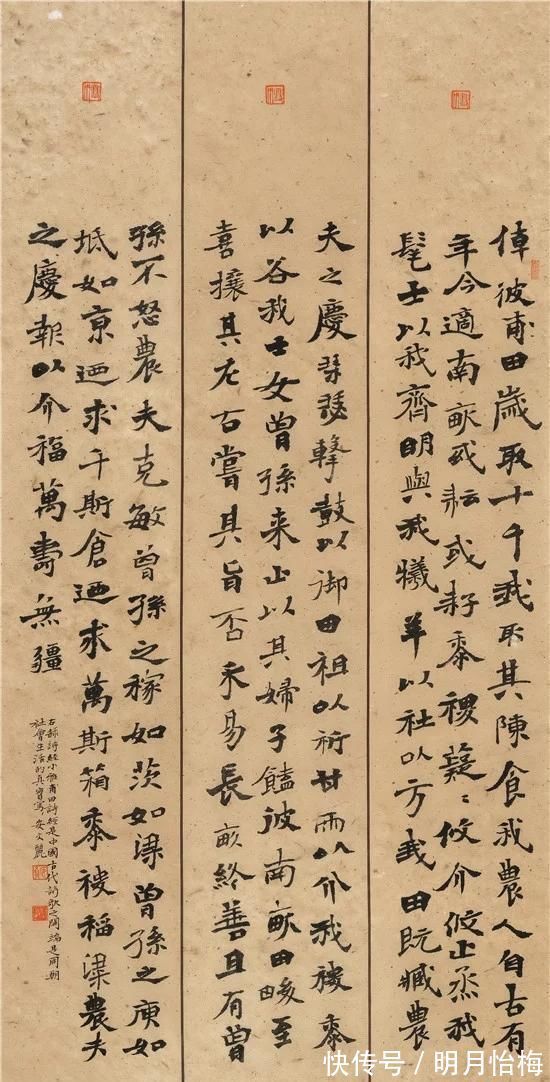 倬彼甫田歲取十千我取其陳食我農人自古有
年今適南畝或耘或耔黍稷薿〻攸介攸止烝我
髦士以我齊明與我犧羊以社以方我田既臧農
夫之慶琴瑟擊鼓以御田祖以祈甘雨以介我稷黍
以谷我士女曾孫来止以其婦子饁彼南畝田畯至
喜攘其左右嘗其旨否禾易長畝終善且有曾
孫不怒農夫克敏曾孫之稼如茨如梁曾孫之庾如
坻如京迺求千斯倉迺求萬斯箱黍稷稻梁農夫
之慶報以介福萬壽無疆
右錄詩經小雅甫田詩經是中國古代詩歌之開端是周朝
社會生活的真實寫 安文麗
快传号/明月怡梅